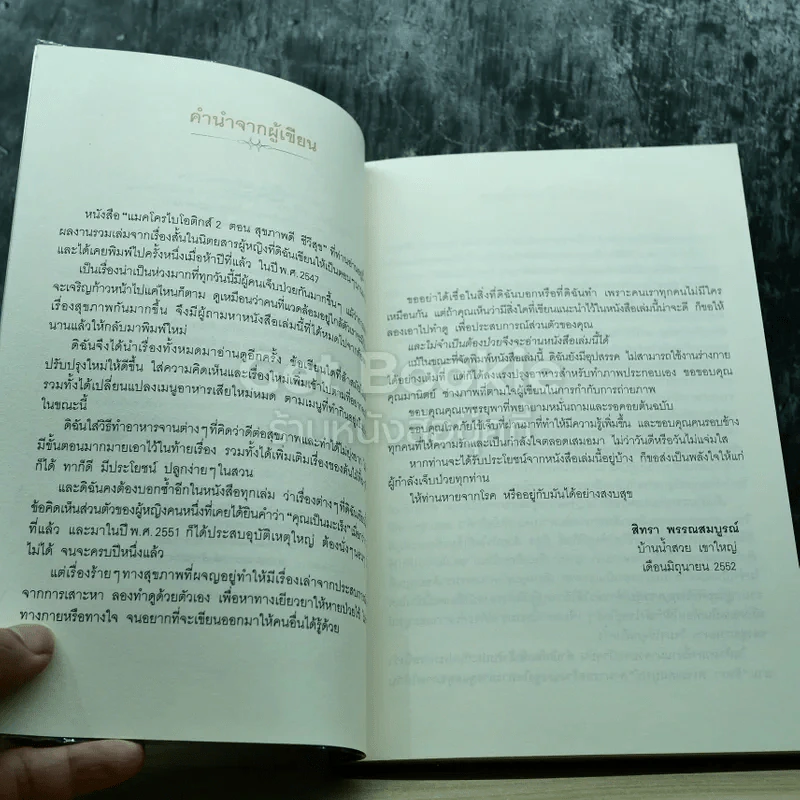 คำนำจากผู้เขียน
หนังสือ "แมคโครไบโอติกส์ 2 ตอน สุขภาพดี ชีวีสุข" ที่ท่านอ่านอยู่นี้
ผลงานรวมเล่มจากเรื่องสั้นในนิตยสารผู้หญิงที่ดิฉันเขียนให้เป็นตอนๆ
และได้เคยพิมพ์ไปครั้งหนึ่งเมื่อห้าปีที่แล้ว ในปี พ.ศ. 2547
เป็นเรื่องน่าเป็นห่วงมากที่ทุกวันนี้มีผู้คนเจ็บป่วยกันมากขึ้นๆ แม้ว่า
จะเจริญก้าวหน้าไปแค่ไหนก็ตาม ดูเหมือนว่าคนที่แวดล้อมอยู่ใกล้ตัวเรา
เรื่องสุขภาพกันมากขึ้น จึงมีผู้ถามหาหนังสือเล่มนี้ที่ได้หมดไปจาก
นานแล้วให้กลับมาพิมพ์ใหม่
ดิฉันจึงได้นำเรื่องทั้งหมดมาอ่านดูอีกครั้ง ข้อเขียนใดที่ล้าสมัย
ปรับปรุงใหม่ให้ดีขึ้น ใส่ความคิดเห็นและเรื่องใหม่เพิ่มเข้าไปตามที่
รวมทั้งได้เปลี่ยนแปลงเมนูอาหารเสียใหม่หมด ตามเมนูที่ทำกิน
ในขณะนี้
ดิฉันใส่วิธีทำอาหารจานต่างๆ ที่คิดว่าดีต่อสุขภาพและทำได้ไม่ยุ่งยาก
มีขั้นตอนมากมายเอาไว้ในท้ายเรื่อง รวมทั้งได้เพิ่มเติมเรื่องของต้นไม้
ก็ได้ ทาก็ดี มีประโยชน์ ปลูกง่ายๆ ในสวน
และดิฉันคงต้องบอกซ้ำอีกในหนังสือทุกเล่ม ว่าเรื่องต่างๆ ที่ดิฉัน
ข้อคิดเห็นส่วนตัวของผู้หญิงคนหนึ่งที่เคยได้ยินคำว่า "คุณเป็นมะเร็ง"
ที่แล้ว และมาในปี พ.ศ. 2551 ก็ได้ประสบอุบัติเหตุใหญ่ ต้องนั่งๆ นอนๆ
ไม่ได้ จนจะครบปีหนึ่งแล้ว
แต่เรื่องร้ายๆ ทางสุขภาพที่ผจญอยู่ทำให้มีเรื่องเล่าจากประสบการณ์
จากการเสาะหา ลองทำดูด้วยตัวเอง เพื่อหาทางเยียวยาให้หายป่วยไข้
ทางกายหรือทางใจ จนอยากที่จะเขียนออกมาให้คนอื่นได้รู้ด้วย
ขออย่าได้เชื่อในสิ่งที่ดิฉันบอกหรือที่ดิฉันทำ เพราะคนเราทุกคนไม่มีใคร
เหมือนกัน แต่ถ้าคุณเห็นว่ามีสิ่งใดที่เขียนแนะนำไว้ในหนังสือเล่มนี้น่าจะดี ก็ขอให้
ลองเอาไปทำดู เพื่อประสบการณ์ส่วนตัวของคุณ
และไม่จำเป็นต้องป่วยจึงจะอ่านหนังสือเล่มนี้ได้
แม้ในขณะที่จัดพิมพ์หนังสือเล่มนี้ ดิฉันยังมีอุปสรรค ไม่สามารถใช้งานร่างกาย
ได้อย่างเต็มที่ แต่ก็ได้ลงแรงปรุงอาหารสำหรับทำภาพประกอบเอง ขอขอบคุณ
คุณมานิตย์ ช่างภาพที่ตามใจผู้เขียนในการกำกับการถ่ายภาพ
ขอบคุณคุณเพชรยุพาที่พยายามหมั่นถามและรอคอยต้นฉบับ
ขอบคุณโรคภัยไข้เจ็บที่ผ่านมาที่ทำให้มีความรู้เพิ่มขึ้น และขอบคุณคนรอบข้าง
ทุกคนที่ให้ความรักและเป็นกำลังใจตลอดเสมอมา ไม่ว่าวันดีหรือวันไม่แจ่มใส
หากท่านจะได้รับประโยชน์จากหนังสือเล่มนี้อยู่บ้าง ก็ขอส่งเป็นพลังใจให้แก่
ผู้กำลังเจ็บป่วยทุกท่าน
ให้ท่านหายจากโรค หรืออยู่กับมันได้อย่างสงบสุข
สิทรา พรรณสมบูรณ์
บ้านน้ำสวย เขาใหญ่
เดือนมิถุนายน 2552